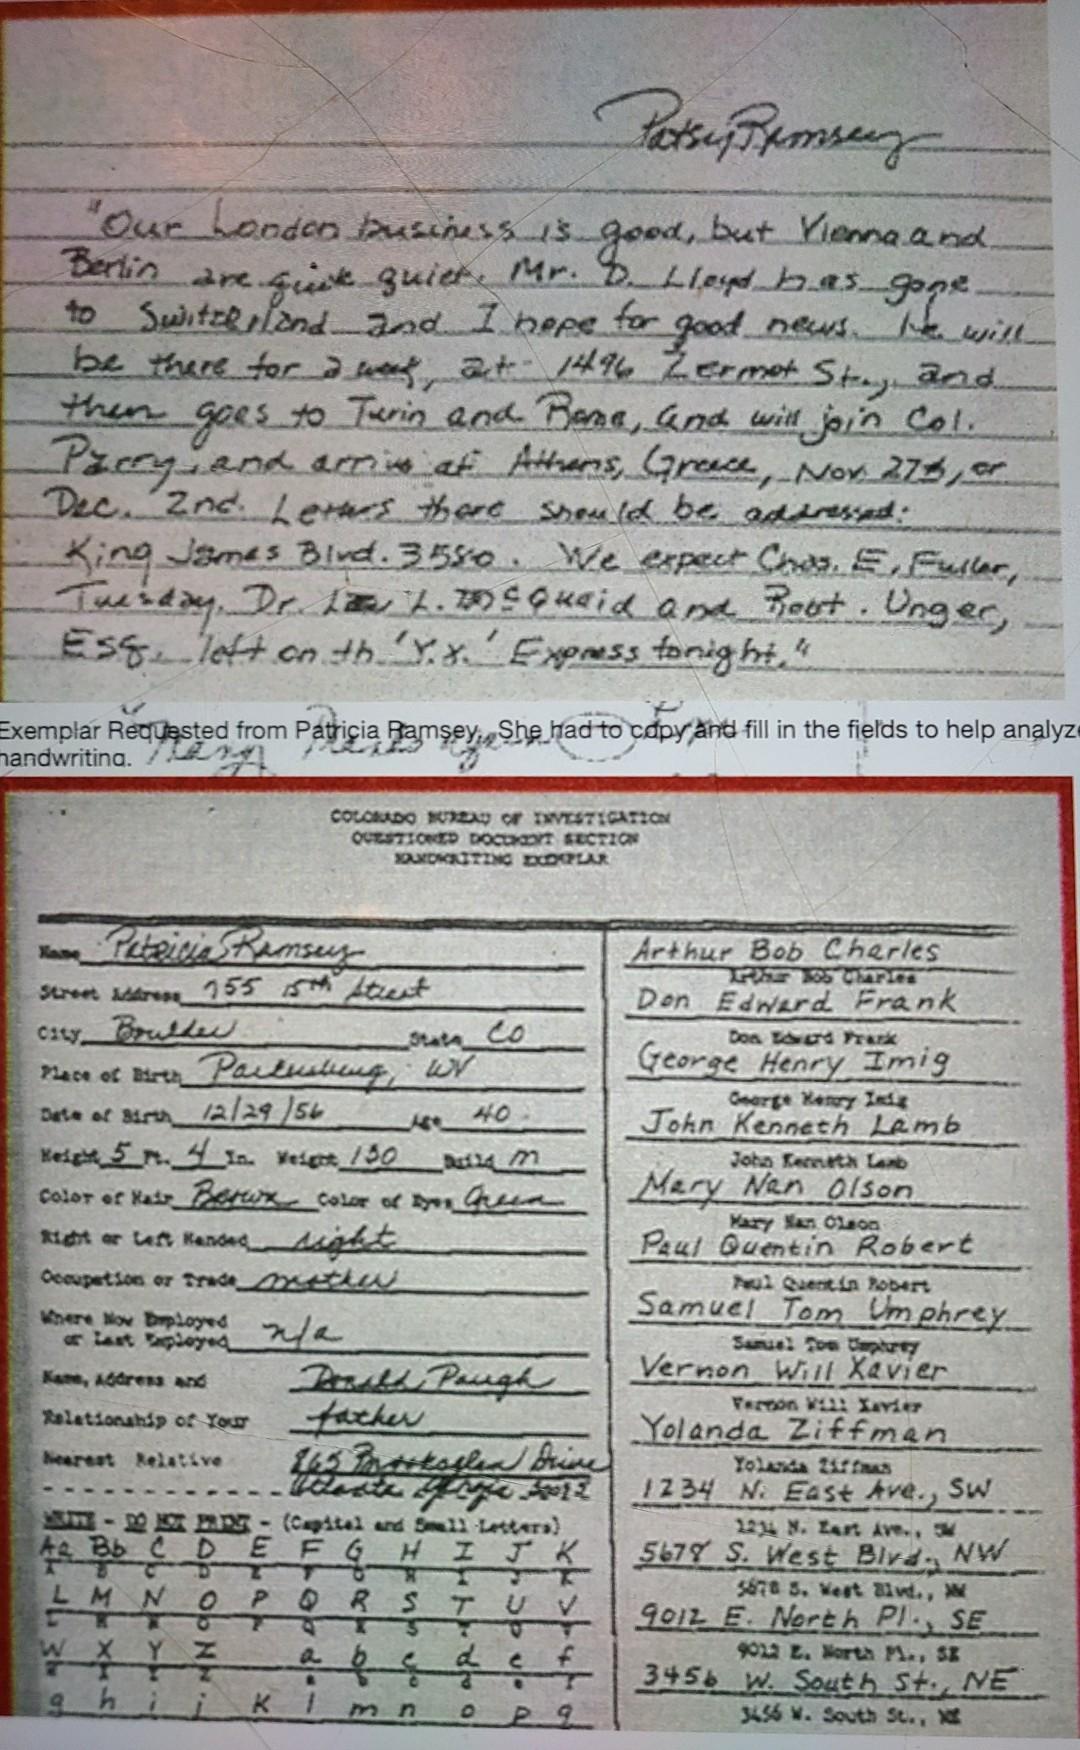 Patsy Ramsey
"Our London business is good, but Vienna and
Berlin are quiet. Mr. D. Lloyd has gone
to Switzerland and I hope for good news. He will
be there for a week, at 1496 Zermot St., and
then goes to Turin and Rome, and will join Col.
Parry, and arrive at Athens, Greece, Nov. 27th, or
Dec. 2nd. Letters there should be addressed:
King James Blvd. 3580. We expect Chas. E. Fuller,
Tuesday. Dr. L. McQuaid and Robt. Unger,
Esq. left on th 'Y.X.' Express tonight."
Exemplar Requested from Patricia Ramsey. She had to copy and fill in the fields to help analyze
handwriting.
COLORADO BUREAU OF INVESTIGATION
QUESTIONED DOCUMENT SECTION
HANDWRITING EXEMPLAR
Name Patricia Ramsey
Street Address 755 15th Street
City Boulder State CO
Place of Birth Parkersburg, WV
Date of Birth 12/29/56 Age 40
Height 5 Ft. 4 In. Weight 130 Build m
Color of Hair Brown Color of Eyes Green
Right or Left Handed right
Occupation or Trade mother
Where Now Employed
or Last Employed n/a
Name, Address and Donald Paugh
Relationship of Your father
Nearest Relative 865 Drive
Atlanta Georgia
WRITE - DO NOT PRINT - (Capital and Small Letters)
Aa Bb C D E F G H I J K
A B C D E F G H I J K
L M N O P Q R S T U V
L M N O P Q R S T U V
W X Y Z a b c d e f
W X Y Z a b c d e f
g h i j K l m n o p q
Arthur Bob Charles
Arthur Bob Charles
Don Edward Frank
Don Edward Frank
George Henry Imig
George Henry Imig
John Kenneth Lamb
John Kenneth Lamb
Mary Nan Olson
Mary Nan Olson
Paul Quentin Robert
Paul Quentin Robert
Samuel Tom Umphrey
Samuel Tom Umphrey
Vernon Will Xavier
Vernon Will Xavier
Yolanda Ziffman
Yolanda Ziffman
1234 N. East Ave., SW
1234 N. East Ave., SW
5678 S. West Blvd., NW
5678 S. West Blvd., NW
9012 E. North Pl., SE
9012 E. North Pl., SE
3456 W. South St., NE
3456 W. South St., NE